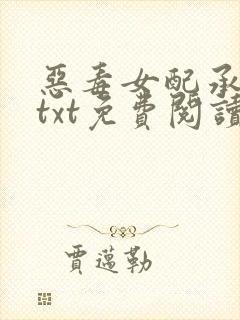 惡毒女配承
txt免費閱讀
賈蓮勒